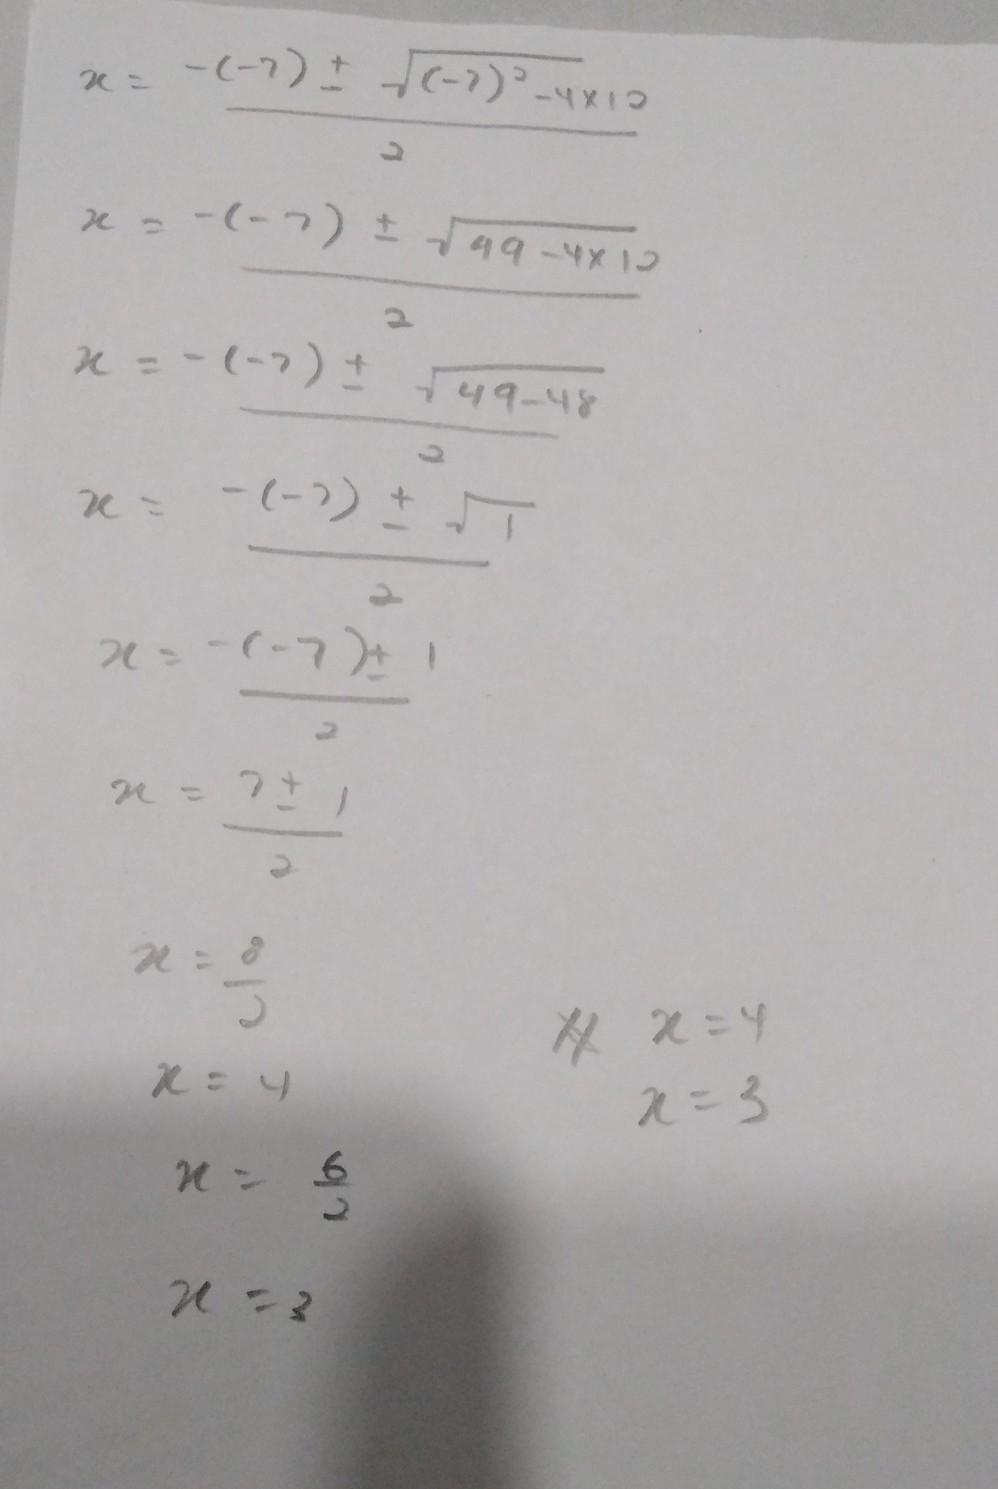 x = -(-7) ± √(-7)² - 4×12 / 2
x = -(-7) ± √49 - 4×12 / 2
x = -(-7) ± √49 - 48 / 2
x = -(-7) ± √1 / 2
x = -(-7) ± 1 / 2
x = 7 ± 1 / 2
x = 8 / 2
x = 4
x = 6 / 2
x = 3
x = 4
x = 3